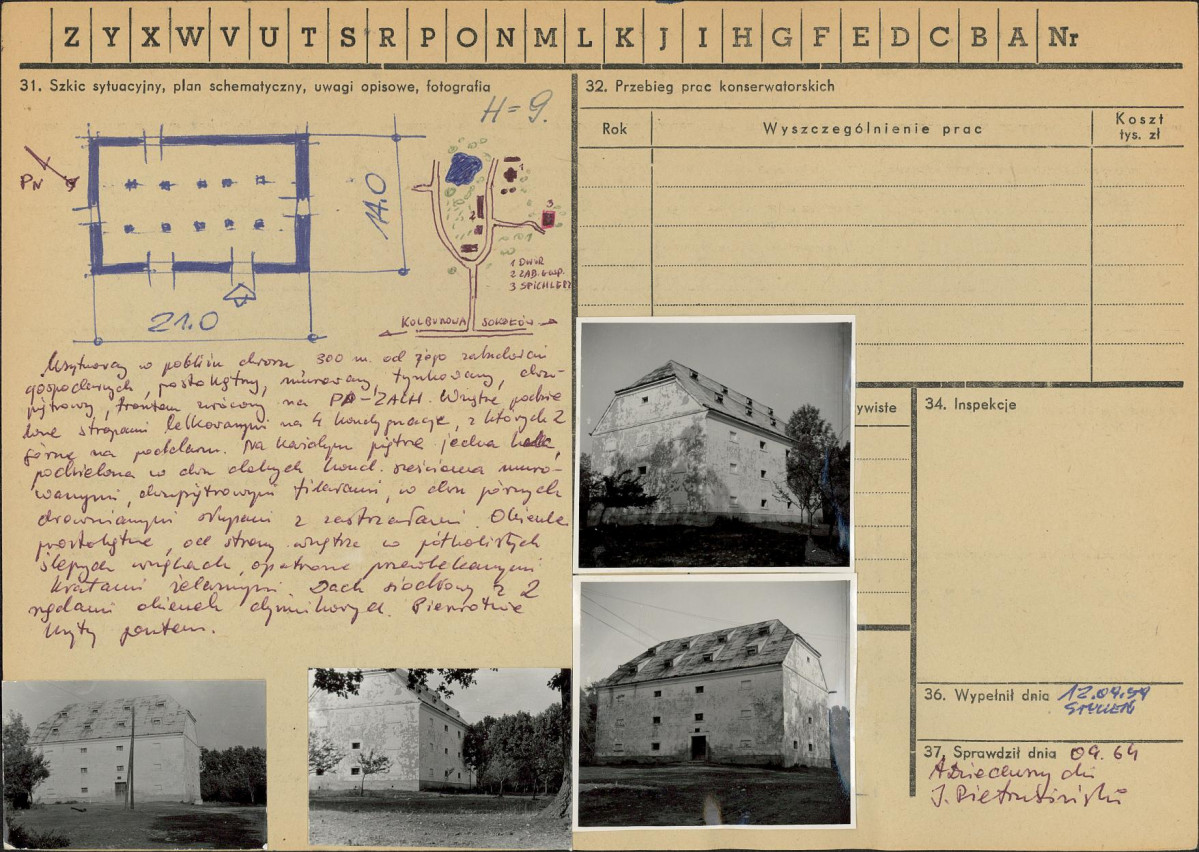 Z Y X W V U T S R P O N M L K J I H G F E D C B A Nr
31. Szkic sytuacyjny, plan schematyczny, uwagi opisowe, fotografia
H = 9.
PN
14.0
21.0
1
2
3
1 DWÓR
2 ZAB. GOSP.
3 SPICHLERZ
KOLBUSZOWA SOKOŁÓW
Usytuowany w pobliżu dworu 300 m. od jego zabudowań
gospodarczych, prostokątny, murowany, tynkowany, dwu-
piętrowy, frontem zwrócony na PD-ZACH. Wnętrze podzie
lone stropami belkowanymi na 4 kondygnacje, z których 2
górne na poddaszu. Na każdym piętrze jedna hala,
podzielona w dwu dolnych kond. sześcioma muro-
wanymi, dwupiętrowymi filarami, w dwu górnych
drewnianymi słupami z zastrzałami. Okienka
prostokątne, od strony wnętrza w półkolistych
ślepych wnękach, opatrzone przewlekanymi
kratami żelaznymi. Dach siodłowy z 2
rzędami okienek dymnikowych. Pierwotnie
kryty gontem.
32. Przebieg prac konserwatorskich
Rok
Wyszczególnienie prac
Koszt
tys. zł
ywiste
34. Inspekcje
36. Wypełnił dnia 12.09.59
37. Sprawdził dnia 09.64